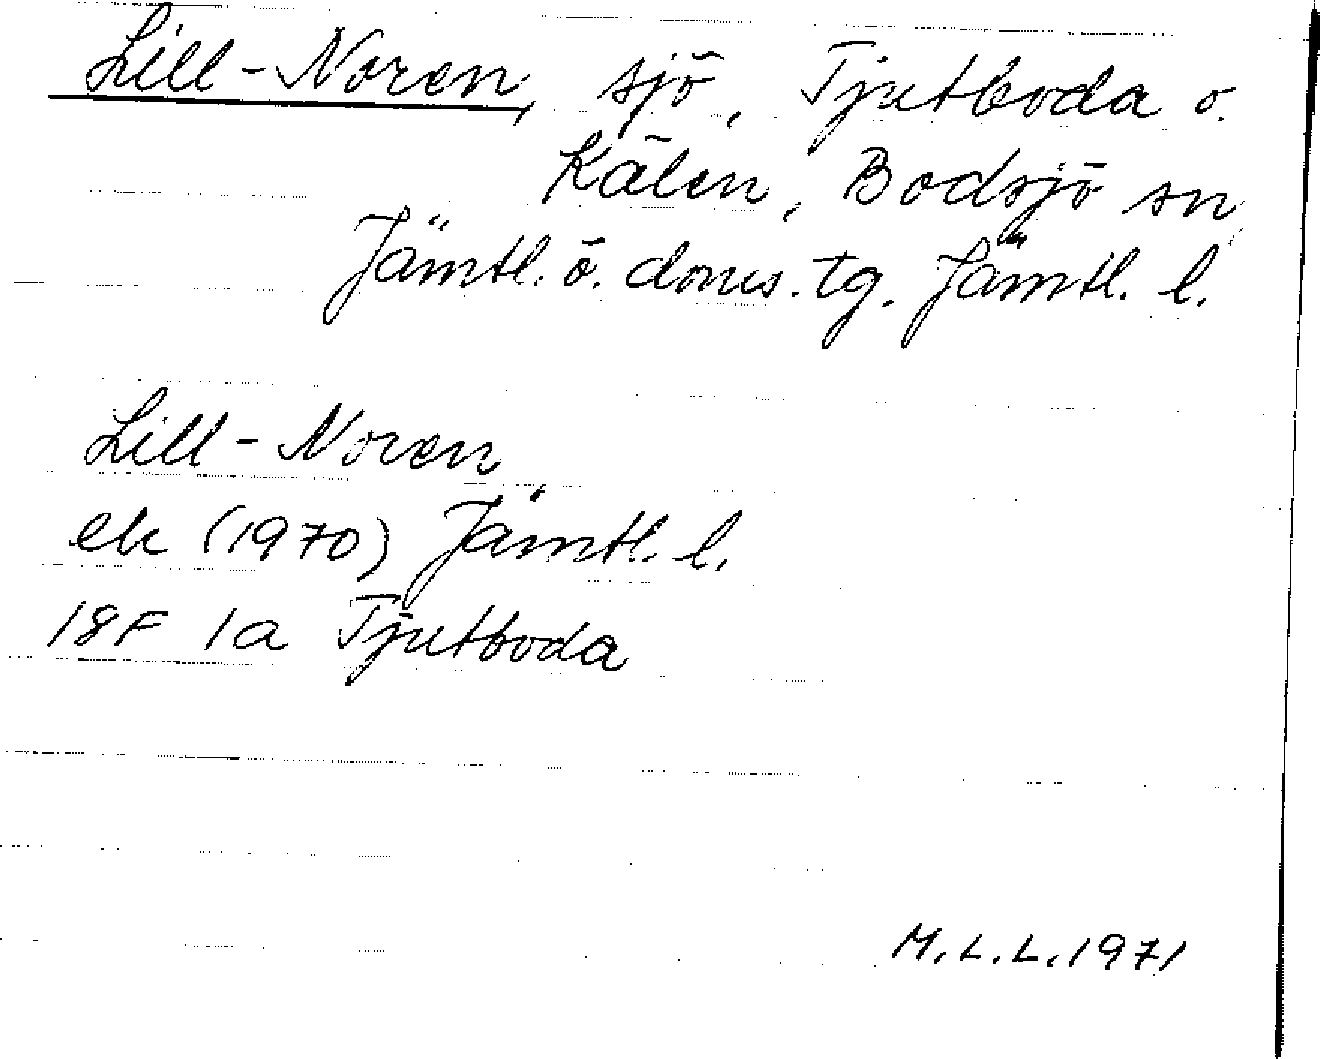 Lill-Noren, sjö, Tjutboda o.
Kälen, Bodsjö sn,
Jämtl. ö. doms. tg. Jämtl. l.
Lill-Noren,
ek (1970) Jämtl. l.
18F 1a Tjutboda
M.L.L. 1971